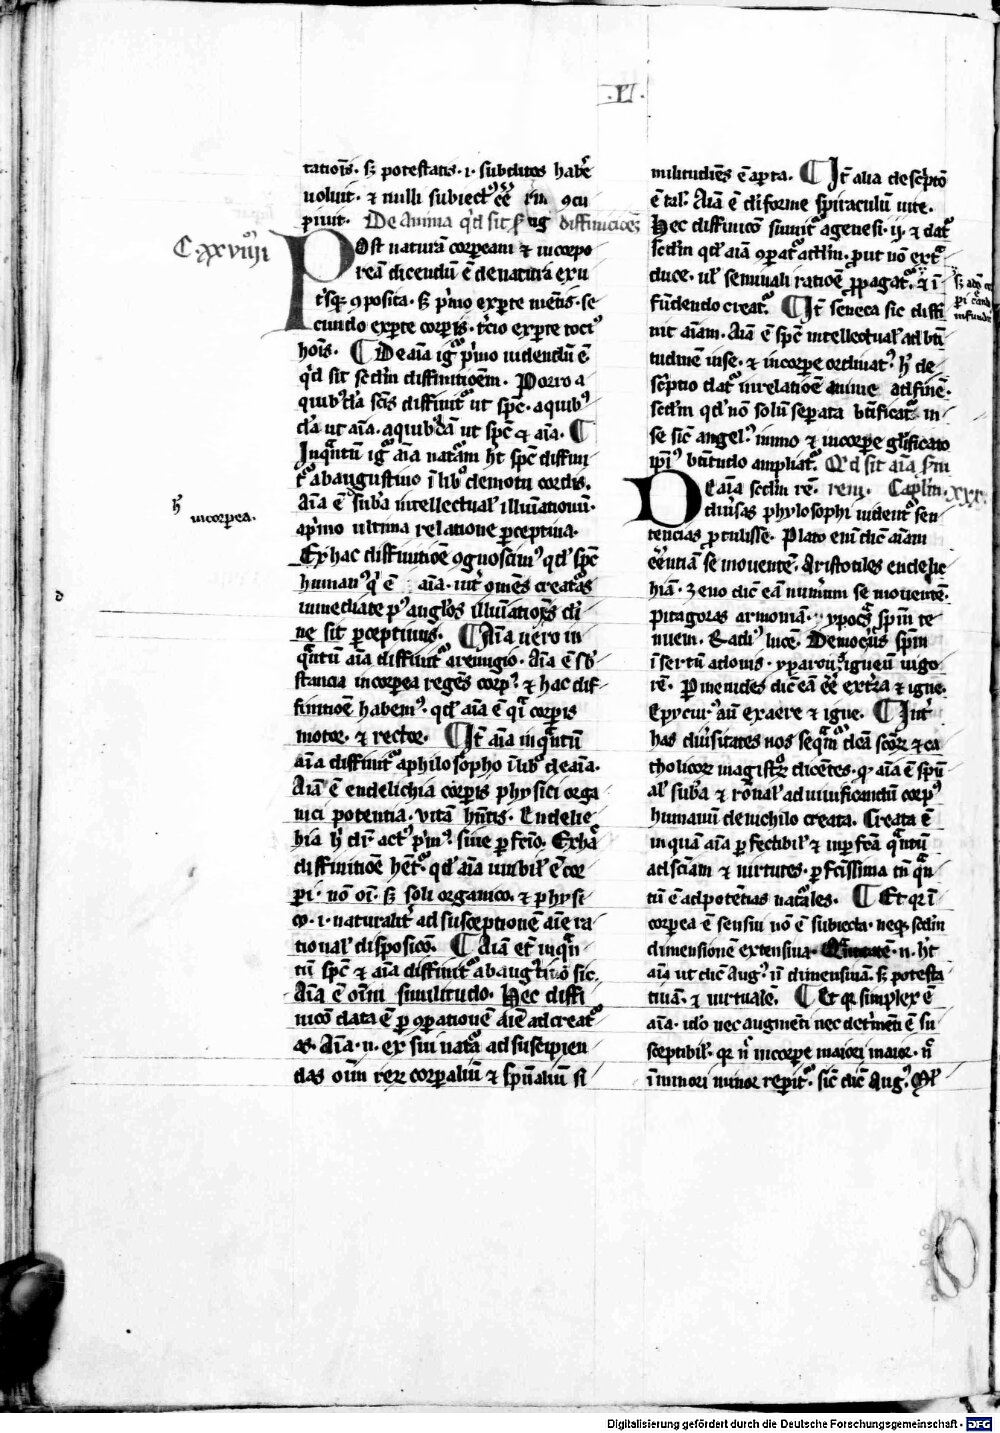 .II.
tatiois. sꝫ potestatis .i. subditos haber̄
uoluit. ⁊ nulli subiect᷒ eē
piuit. De Anima qd sit diffiniciōes
C. xxviiij
Post naturā corpeam ⁊ incorpo
reā dicendū ē de natura ex u
t'sqꝫ ꝯposita. sꝫ p'mo ex pte mētis. se
cundo ex pte corpis. t'cio ex pte toci᷒
hois. ¶ De aīa ig' p'mo uidendū ē
qd sit scd'm diffinitioēm. Porro a
quib᷒dā scīs diffinit᷑ ut spc̄. a quib᷒
dā ut aīa. a quib᷒dā ut spc̄ ⁊ aīa. ¶
Inqntū ig' aīa natām ht spc̄ diffini
t᷑ ab augustino ī lib' de motu cordis.
Aīa ē suba intellectual' illuīationū.
a p'mo ultima relatione pceptiua.
Ex hac diffinitiōe ꝯgnoscim᷒ qd' spc̄
human᷒ q' ē aīa. int' omēs creatas
inmediate p᷒ anglos illuīatiōis di
ne sit pceptiuus. ¶ Aīa uero in
qntū aīa diffinit᷑ a remigio. Aīa ē sb'
stancia incorpea regēs corp᷒. ⁊ hac dif
finitiōe habem᷒. qd' aīa ē q̄i corpis
motor. ⁊ rector. ¶ It̄ aīa inqntū
aīa diffinit᷑ a philosopho ī lib' de aīa.
Aīa ē endelichia corpis physici orga
nici potentia uitā hntis. Endelic
hia h' dr̄ act᷒ p'm᷒. siue pfcīo. Ex hac
diffinitiōe het᷑. qd' aīa uisibil' ē cor
pi. nō oī. sꝫ soli organico. ⁊ physi
co .i. naturalit' ad susceptionē aīe ra
tional' disposico. ¶ Aīa et̄ inqn
tū spc̄ ⁊ aīa diffinit᷑ ab augustino sic.
Aīa ē oīm similitudo. Hec diffi
nicō data ē p ꝯparationē aīe ad creat᷑
as. Aīa .n. ex sui nata ad suscipien
das oīm reꝝ corpaliū ⁊ spūaliū si
h'
incorpea.
militudiēs ē apta. ¶ It̄ alia descptō
ē tal'. Aīa ē diforme spiraculū uite.
Hec diffinicō sumit᷑ a genesi .ij. ⁊ dat᷑
scd'm qd' aīa ꝯparat᷑ ad dm̄. prout nō ext̄
duce. ul' seminali ratioē ppagat᷑. ꝫ ī
fūdendo creat᷑. ¶ It̄ seneca sic diffi
nit aīam. Aīa ē spc̄ intellectual' ad bti
tudinē in se. ⁊ in corpe ordinat᷒. H' de
scptio dat᷑ in relatioē anime ad finē.
scd'm qd' nō solū sepata btificat᷑ in
se sic̄ angel᷒. immo ⁊ in corpe glificato
ip̄i᷒ btitudo ampliat᷑. Q'd sit aīa s'm
De aīa scd'm rē. rem. Capl'm. xxx.
diu'sas phylosophi uident᷑ sen
tencias ptulisse. Plato eni dic̄ aīam
eēntiā se mouentē. Aristotiles endelic
hiā. zeno dic̄ eā num'um se mouentē.
Pitagoras armoniā. ypoc᷑s spm te
nuem. Eradi᷒ lucē. Democ'tus spm
īsertū adomis. yparcus igneum uigo
rē. Pmenides dic̄ eā eē ex t'ra ⁊ igne.
Epycur᷒ aū ex aere ⁊ igne. ¶ Int'
has diu'sitates nos seqm᷑ dcā scōꝝ ⁊ ca
tholicoꝝ magistroꝝ dicētes. q' aīa ē spū
al' suba ⁊ rōnal' ad uiuificandū corp᷒
humanū de nichilo creata. Creata ē
inquā aīa pfectibil' ⁊ inpfcā qntū
ad sciam ⁊ uirtutes. pfctissima tn̄ qn
tū ē ad potētias nat'ales. ¶ Et qr ī
corpea ē sensui nō ē subiecta. neqꝫ scd'm
dimensionē extensiua. .n. h't
aīa ut dic̄ Aug᷒. n̄ dimensiuā. sꝫ potesta
tiuā. ⁊ uirtualē. ¶ Et qr simplex ē
aīa. ido nec augmēti nec det'mēti ē su
sceptibil'. qr n̄ in corpe maiori maior. n̄
ī minori minor repit᷑. sic̄ dic̄ Aug᷒.
infundit